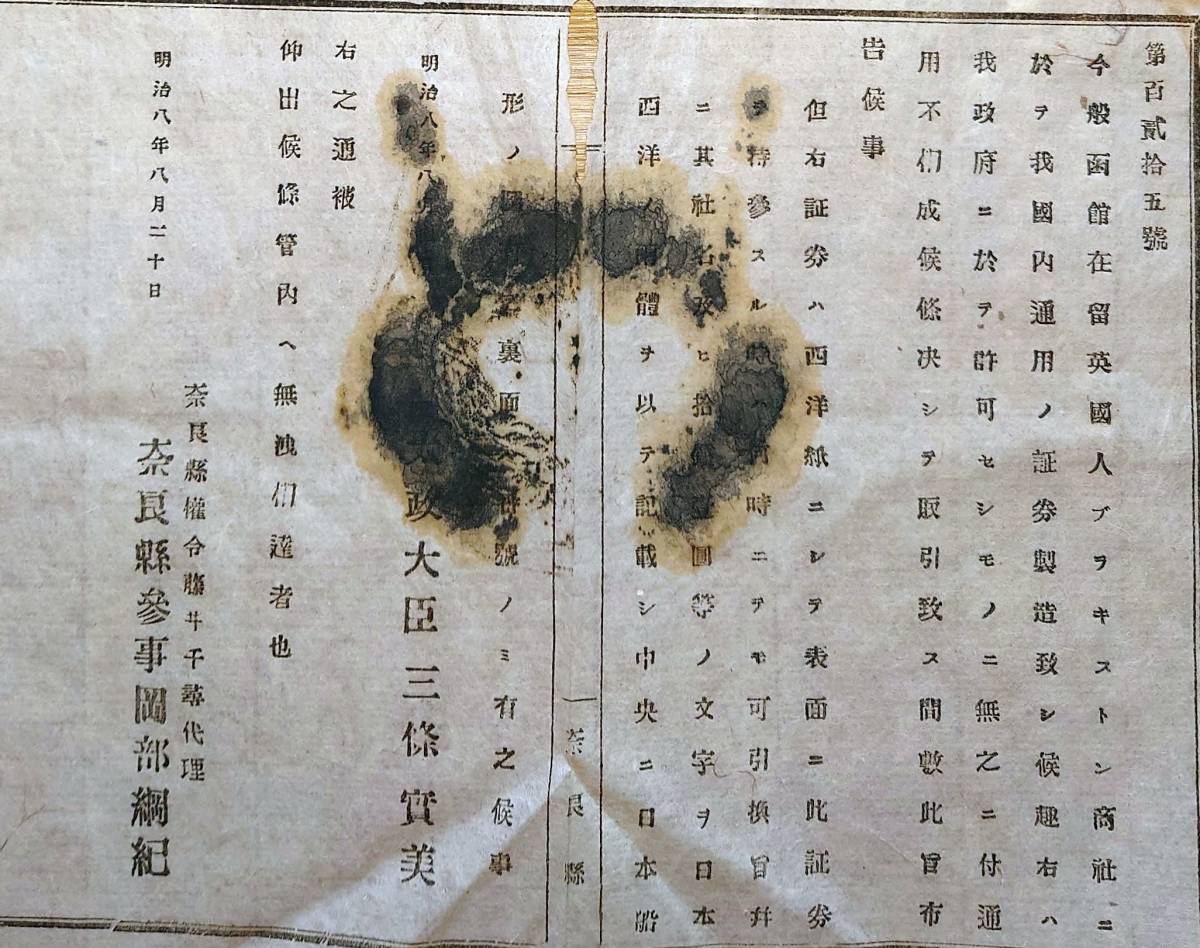 第百貳拾五號
今般函館在留英國人ブヲキストン商社ニ
於テ我國內通用ノ証券製造致シ候趣右ハ
我政府ニ於テ許可セシモノニ無之ニ付通
用不們成候條决シテ取引致ス間敷此旨布
告候事
但右証券ハ西洋紙ニシテ表面ニ此証券
ヲ持參スル時ハ何時ニテモ可引換旨幷
ニ其社名及ヒ拾圓等ノ文字ヲ日本
西洋ノ體ヲ以テ記載シ中央ニ日本船
形ノ裏面號ノミ有之候事
明治八年八月
政大臣三條實美
右之通被
仰出候條管內ヘ無洩們達者也
明治八年八月二十日
奈良縣權令藤井千尋代理
奈良縣參事岡部綱紀
一奈良縣